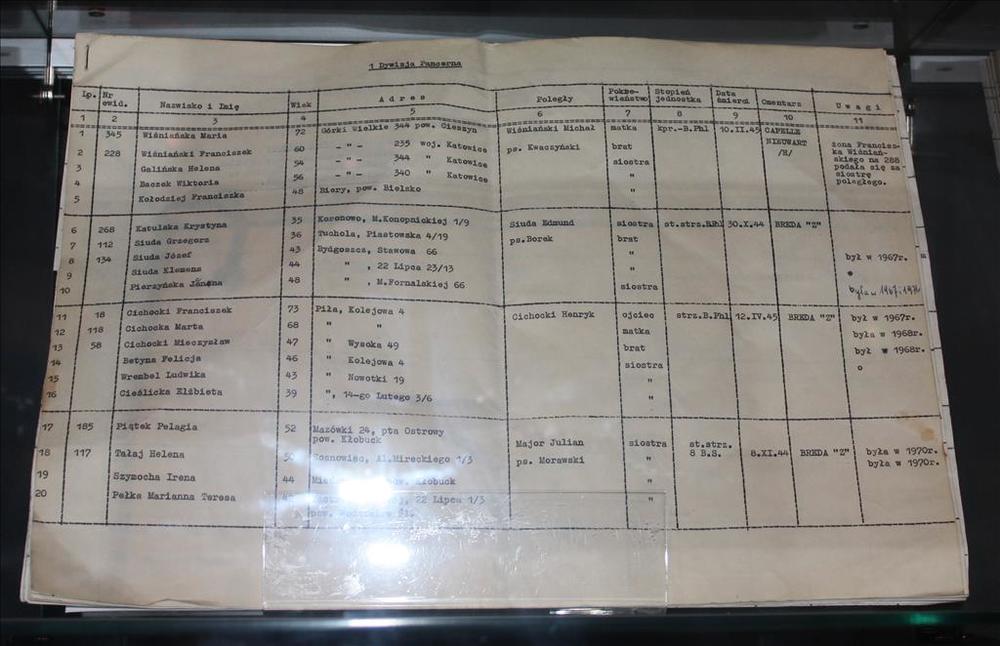 1 Dywizja Pancerna
Lp. Nr ewid. Nazwisko i Imię Wiek Adres Poległy Pokrewieństwo Stopień jednostka Data śmierci Cmentarz Uwagi
1 2 3 4 5 6 7 8 9 10 11
1 345 Wiśniańska Maria 72 Górki Wielkie 344 pow. Cieszyn Wiśniański Michał matka kpr.-B.Phl 10.II.45 CAPELLE
2 228 Wiśniański Franciszek 60 -"- 235 woj. Katowice ps. Kwaczyński brat NIEUWART żona Francisz-
3 Galińska Helena 54 -"- 344 " Katowice siostra /H/ ka Wiśniań-
4 Baczek Wiktoria 56 -"- 340 " Katowice " skiego na 288
5 Kołodziej Franciszka 48 Biery, pow. Bielsko " podała się za
siostrę
poległego.
6 268 Katulska Krystyna 35 Koronowo, M.Konopnickiej 1/9 Siuda Edmund siostra st.strz.B.Phl 30.X.44 BREDA "Z"
7 112 Siuda Grzegorz 36 Tuchola, Piastowska 4/19 ps.Borek brat
8 134 Siuda Józef 43 Bydgoszcz, Stawowa 66 " był w 1967r.
9 Siuda Klemens 44 " , 22 Lipca 23/13 "
10 Pierzyńska Janina 48 " , M.Fornalskiej 66 siostra była w 1967i
11 18 Cichocki Franciszek 73 Piła, Kolejowa 4 Cichocki Henryk ojciec strz.B.Phl 12.IV.45 BREDA "Z" był w 1967r.
12 118 Cichocka Marta 68 " " matka była w 1968r.
13 58 Cichocki Mieczysław 47 " Wysoka 49 brat był w 1968r.
14 Betyna Felicja 46 " Kolejowa 4 siostra
15 Wrembel Ludwika 43 " Nowotki 19 "
16 Cieślicka Elżbieta 39 ", 14-go Lutego 3/6 "
17 185 Piątek Pelagia 52 Mazówki 24, pta Ostrowy
pow. Kłobuck Major Julian siostra st.strz. była w 1970r.
18 117 Tałaj Helena Sosnowiec, Al.Mireckiego 1/3 ps. Morawski " 8 B.S. 8.XI.44 BREDA "Z" była w 1970r.
19 Szymocha Irena 44 Kłobuck "
20 Pełka Marianna Teresa 22 Lipca 1/3 "
pow.